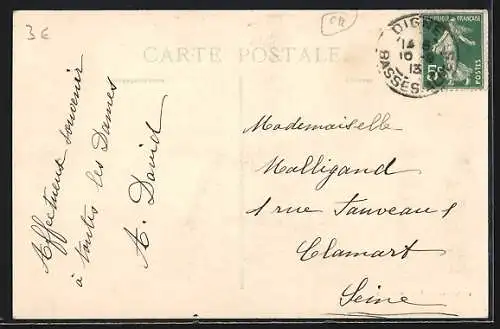 3€
CR
CARTE POSTALE
DIGNE
14
10
13
BASSES-ALPES
RÉPUBLIQUE FRANÇAISE
5c
POSTES
Affectueux souvenir
à toutes les Dames
A. David
Mademoiselle
Malligand
1 rue
Clamart
Seine